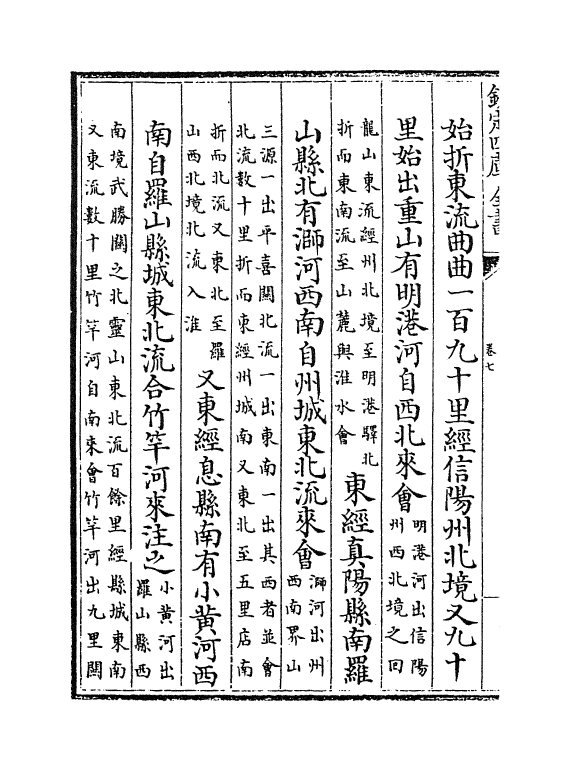 欽定四庫全書
卷七
始折東流曲曲一百九十里經信陽州北境又九十
里始出重山有明港河自西北來會
明港河出信陽
州西北境之回
龍山東流經州北境至明港驛北
折而東南流至山麓與淮水會
東經真陽縣南羅
山縣北有溮河西南自州城東北流來會
溮河出州
西南界山
三源一出平喜關北流一出東南一出其西者並會
北流數十里折而東經州城南又東北至五里店南
折而北流又東北至羅
山西北境北流入淮
又東經息縣南有小黄河西
南自羅山縣城東北流合竹竿河來注之
小黄河出
羅山縣西
南境武勝關之北靈山東北流百餘里經縣城東南
又東流數十里竹竿河自南來會竹竿河出九里關